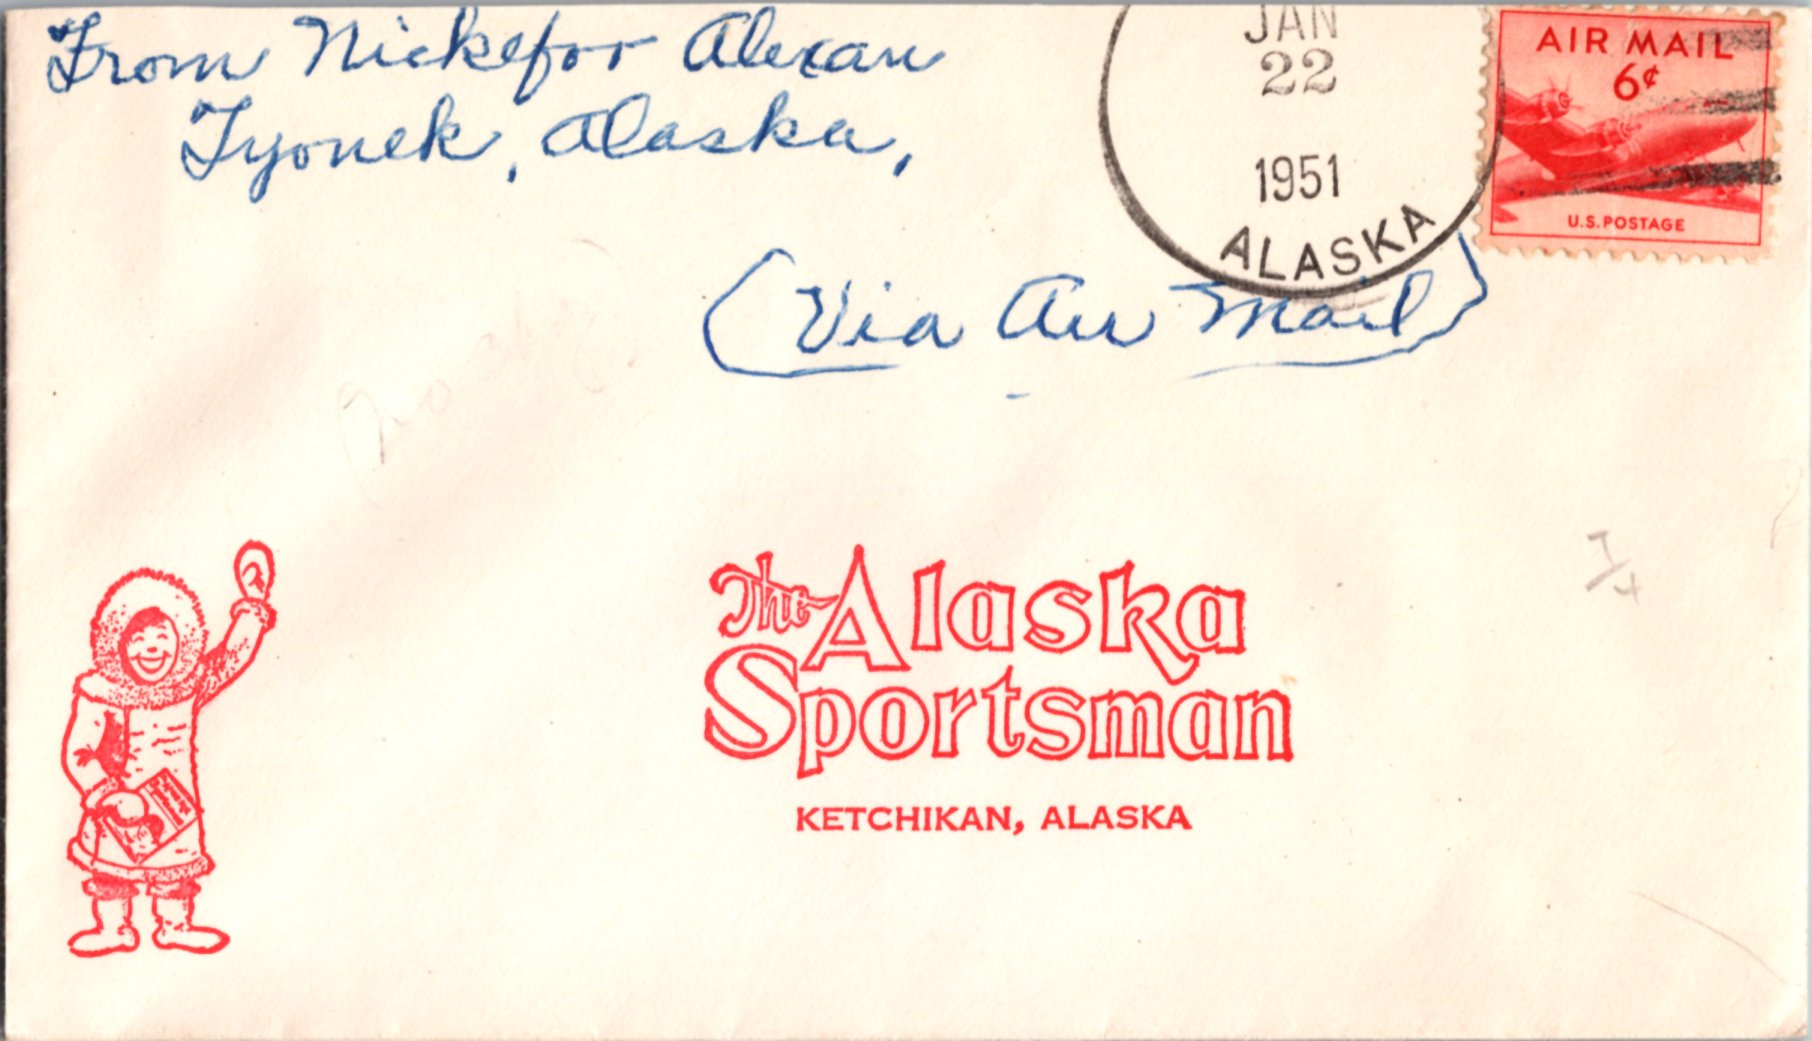 From Nickefor Alexan
Tyonek, Alaska,
JAN
22
1951
ALASKA
AIR MAIL
6¢
U.S. POSTAGE
(Via Air Mail)
The Alaska
Sportsman
KETCHIKAN, ALASKA